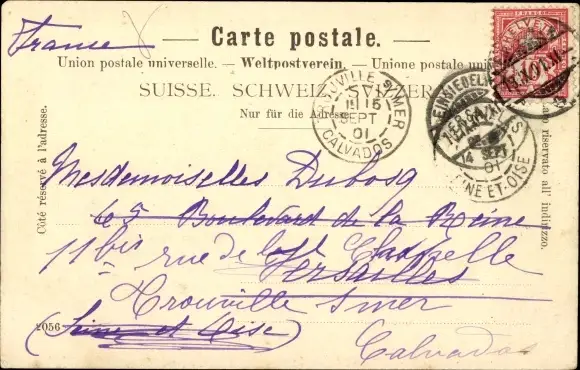 France
Carte postale.
Union postale universelle. — Weltpostverein. — Unione postale
SUISSE. SCHWEIZ. SVIZZERA
Nur für die Adresse
Côté réservé à l'adresse.
Lato riservato all' indirizzo.
HELVETIA
FRANCO
10
TROUVILLE S/MER
15
SEPT
01
CALVADOS
EINSIEDELN
VERSAILLES
14 SEPT
01
SEINE-ET-OISE
Mesdemoiselles Dubosq
65 Boulevard de la Reine
11 bis rue de la Chapelle
Versailles
Trouville s/mer
(Seine et Oise)
Calvados
2056